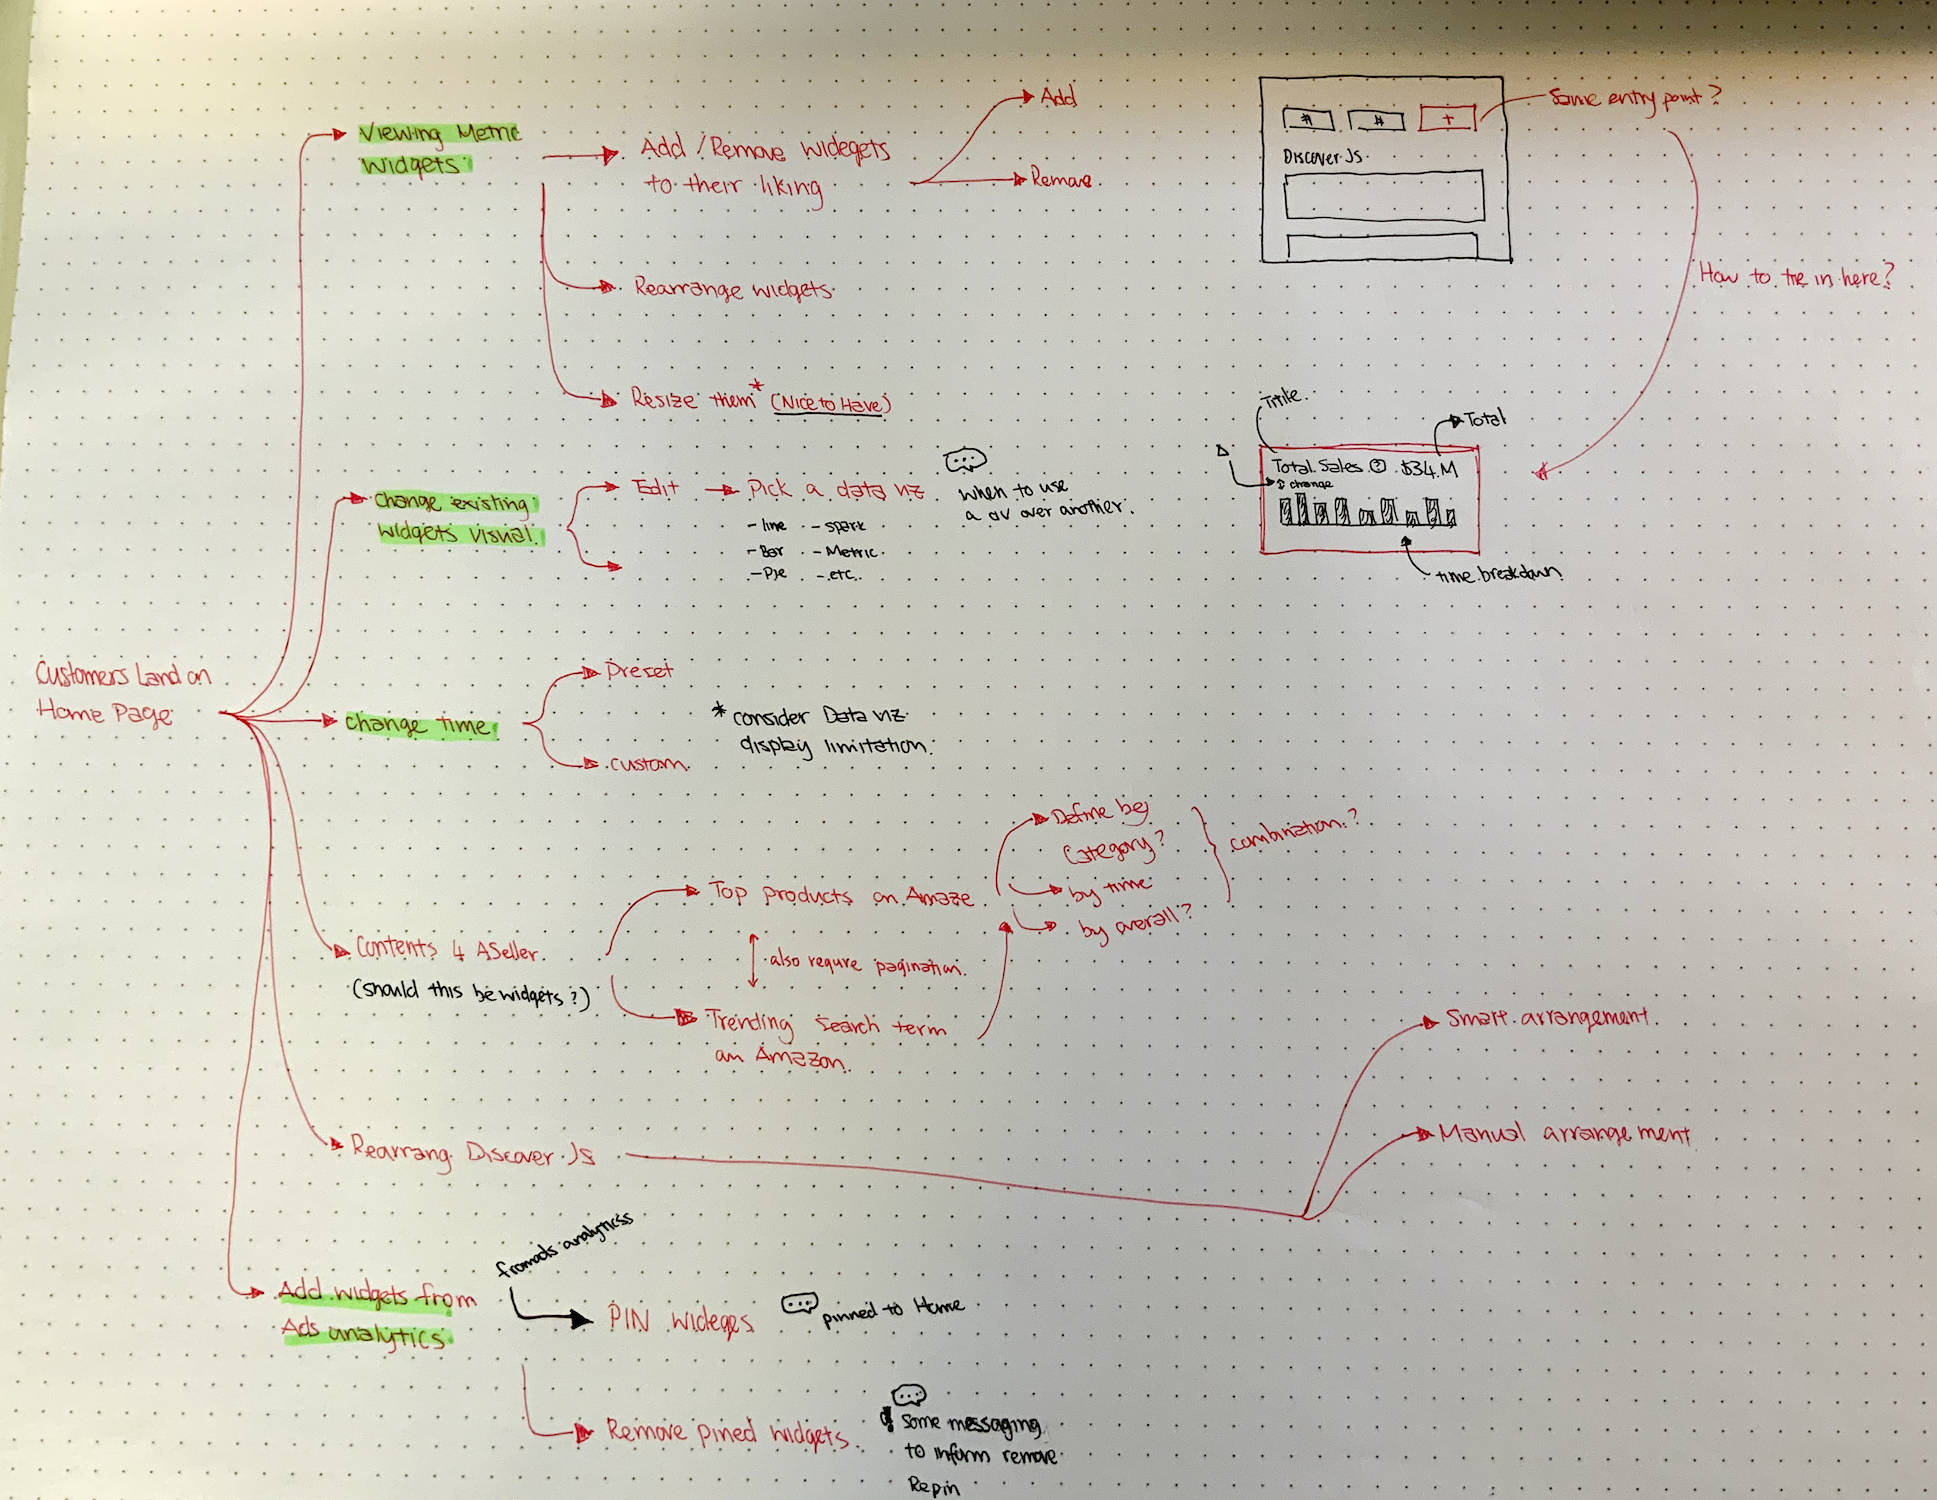 Customers Land on
Home Page
Viewing Metric
Widgets
Add / Remove widegets
to their liking
Add
Remove
Rearrange widgets
Resize them* (Nice to Have)
# # +
Discover Js
Some entry point?
How to tie in here?
change existing
widgets visual
Edit
Pick a data viz
- line - spark
- Bar - Metric
- Pie - etc.
when to use
a dv over another.
Title
Total
Total Sales ? $34.M
↕ change
time breakdown
change time
Preset
custom
* consider Data viz
display limitation.
Contents 4 ASeller
(should this be widgets?)
Top products on Amaze
also require pagination.
Trending search term
on Amazon.
Define by
Category?
by time
by overall?
combination?
Rearrang Discover Js
Smart arrangement.
Manual arrangement
Add widgets from
Ads analytics
from ads analytics
PIN wideges
pinned to Home
Remove pined widgets
some messaging
to inform remove
Repin